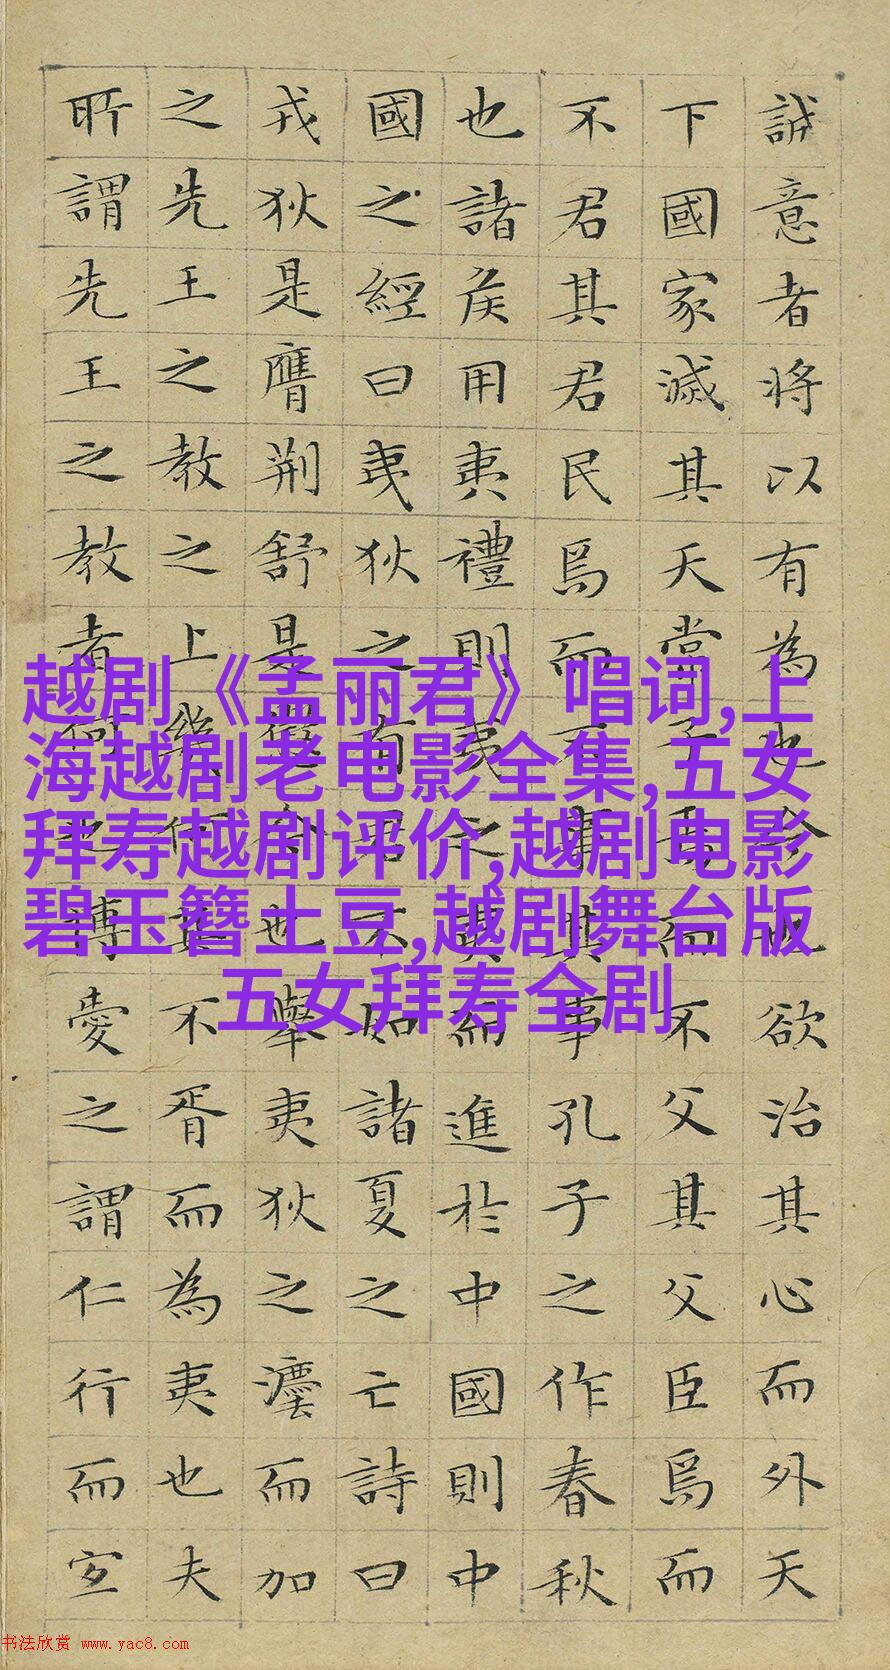 誠意者将以有為也今也欲治其心而外天
下國家滅其天常子焉而不父其父臣焉而
不君其君民焉而不事其事孔子之作春秋
也諸侯用夷禮則夷之夷而進於中國則中
國之經曰夷狄之有君不如諸夏之亡詩曰
戎狄是膺荆舒是懲今也舉夷狄之灋而加
之先王之教之上幾何其不胥而為夷也夫
所謂先王之教者何也博愛之謂仁行而宜
越剧《孟丽君》唱词,上
海越剧老电影全集,五女
拜寿越剧评价,越剧电影
碧玉簪土豆,越剧舞台版
五女拜寿全剧
书法欣赏 www.yac8.com